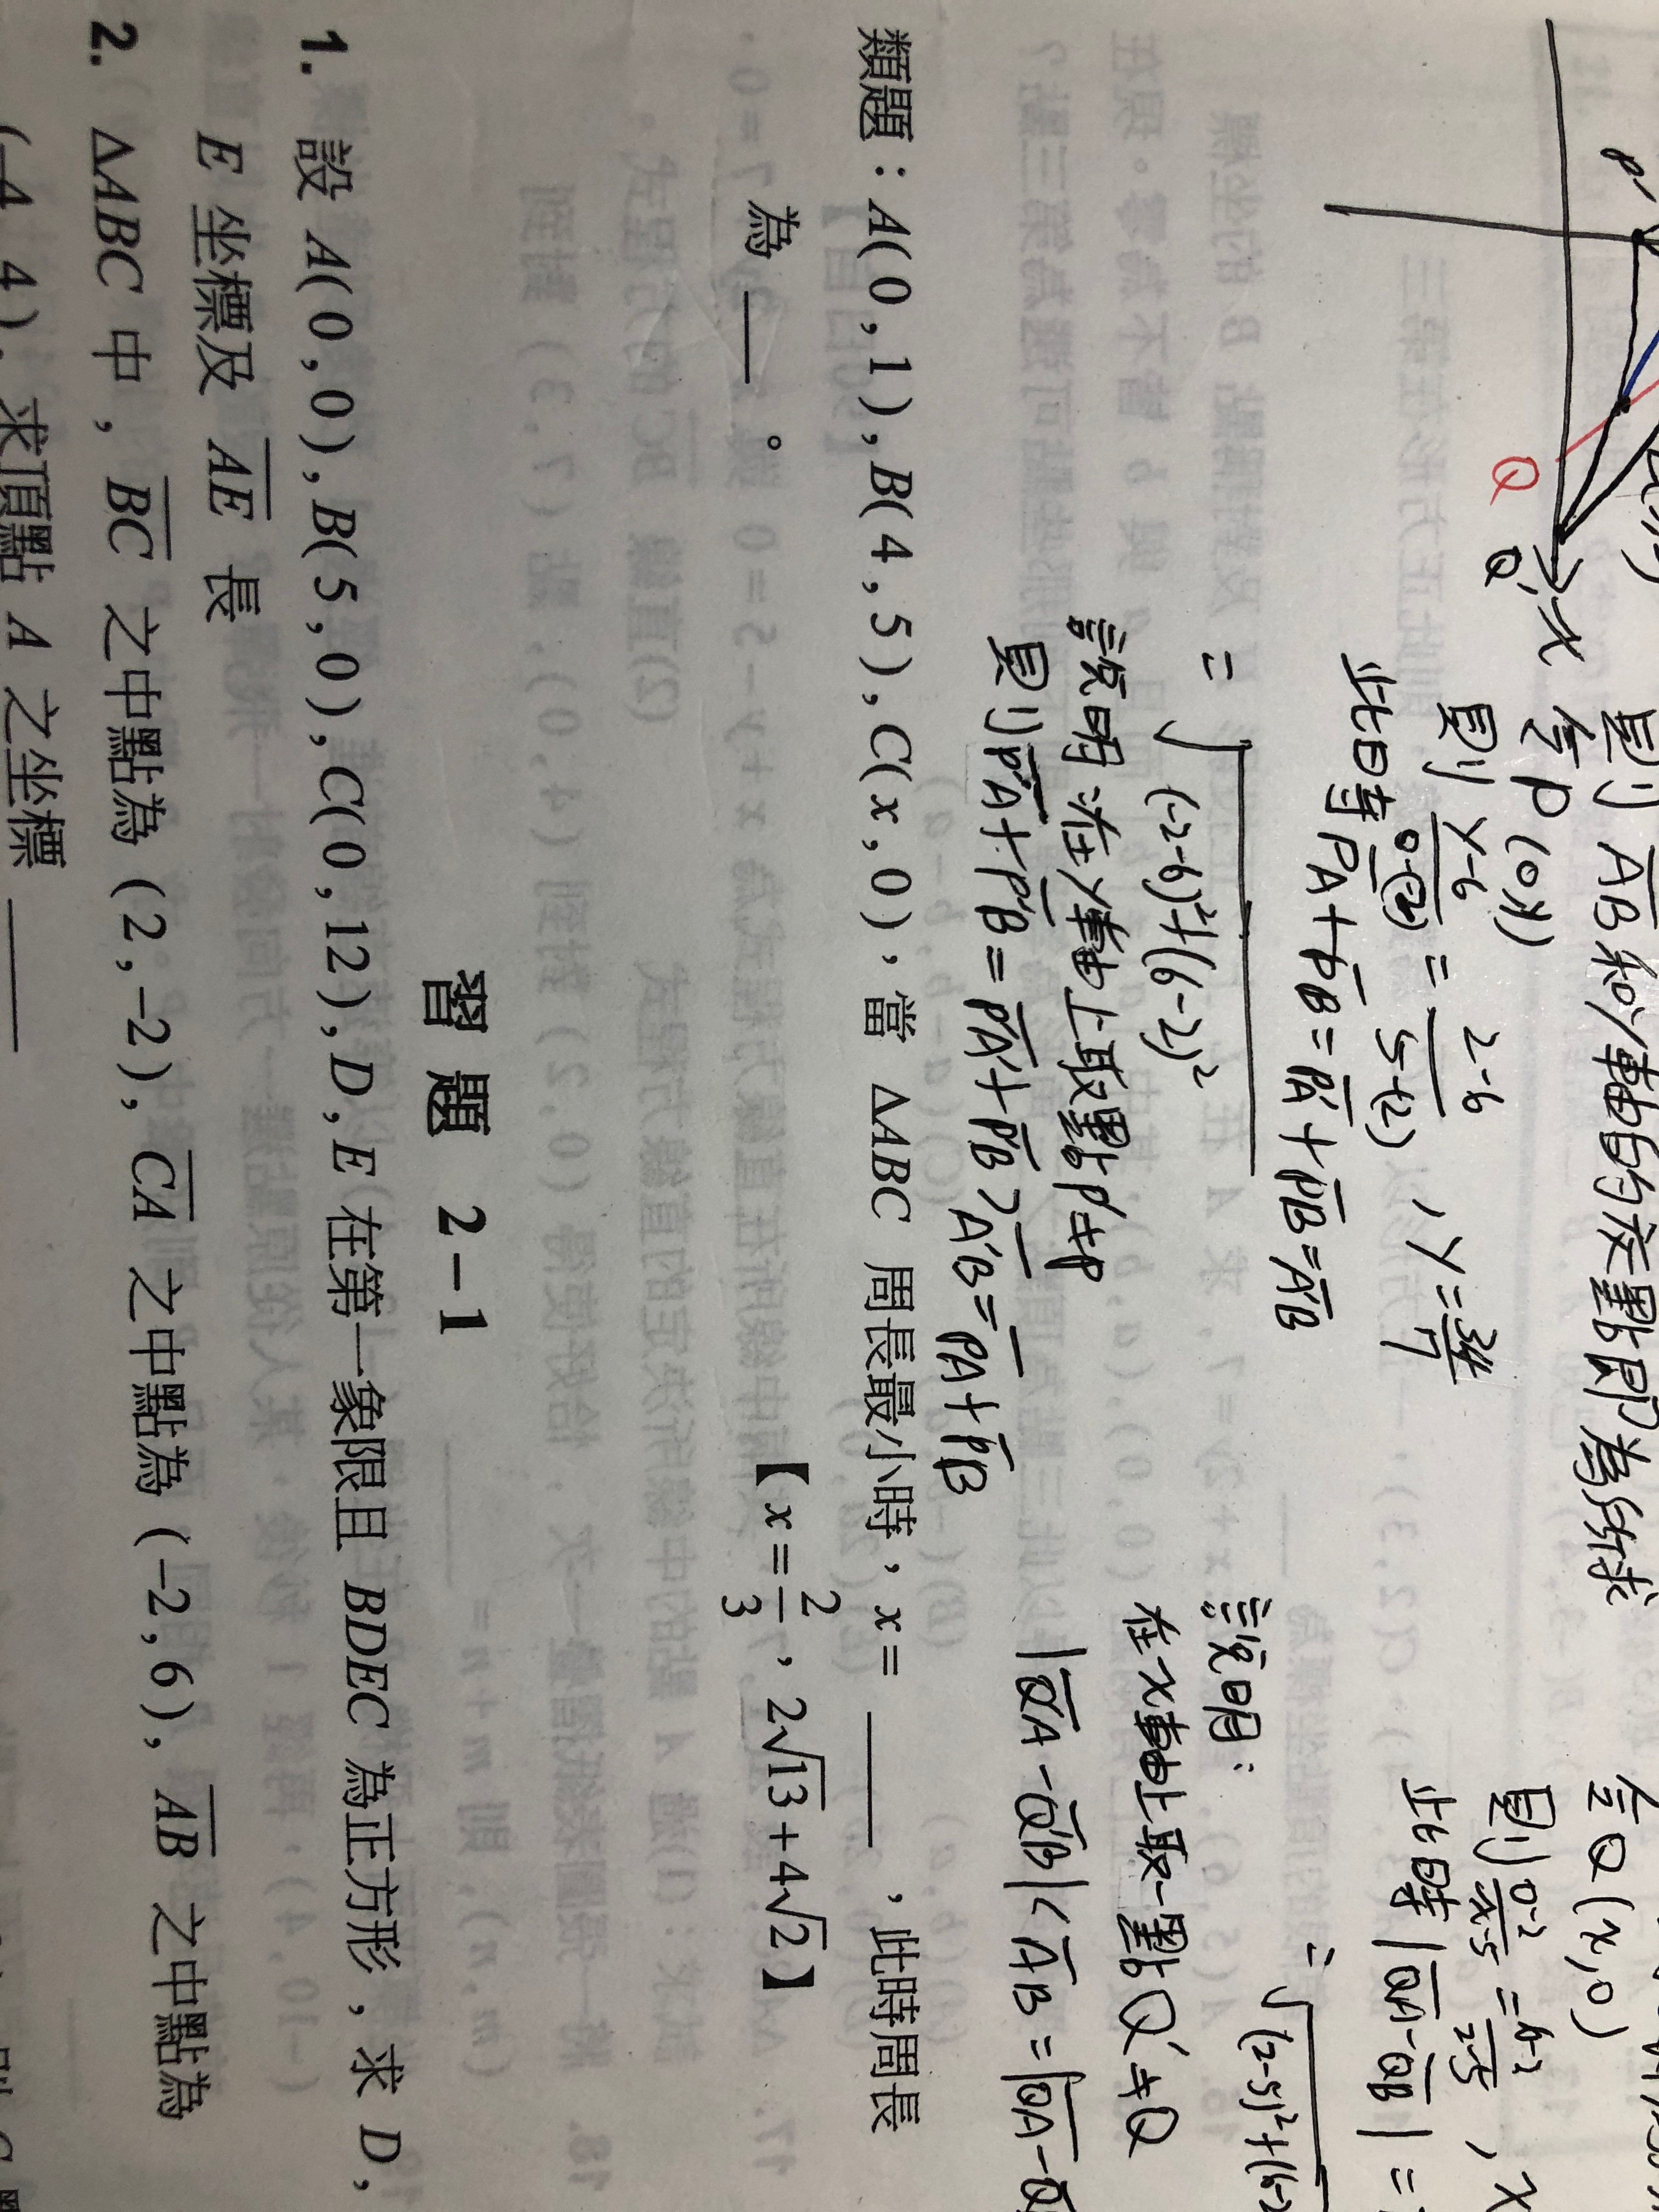 則 AB和y軸的交點即為所求
令P(0,y)
則 y-6/0-(-2) = 2-6/5-(-2) , y=34/7
此時PA+PB=PA'+PB=A'B
= √(-2-6)²+(6-2)²
說明:在y軸上取點P'≠P
則P'A+P'B=P'A'+P'B>A'B=PA+PB
令Q(x,0)
則 0-2/x-5 = 4-2/2-5 , x
此時|QA-QB|=
= √(2-5)²+(4-2
說明:
在x軸上取一點Q'≠Q
|Q'A-Q'B|<AB=|QA-Q
P'
Q
Q'
x
類題：A(0,1),B(4,5),C(x,0)，當 △ABC 周長最小時，x= ____ ，此時周長
為 ____ 。
【x=2/3，2√13+4√2】
習題 2-1
1. 設 A(0,0),B(5,0),C(0,12),D,E 在第一象限且 BDEC 為正方形，求 D,
E 坐標及 AE 長
2. △ABC 中，BC 之中點為 (2,-2),CA 之中點為 (-2,6),AB 之中點為
(-4,4)，求頂點 A 之坐標 ____